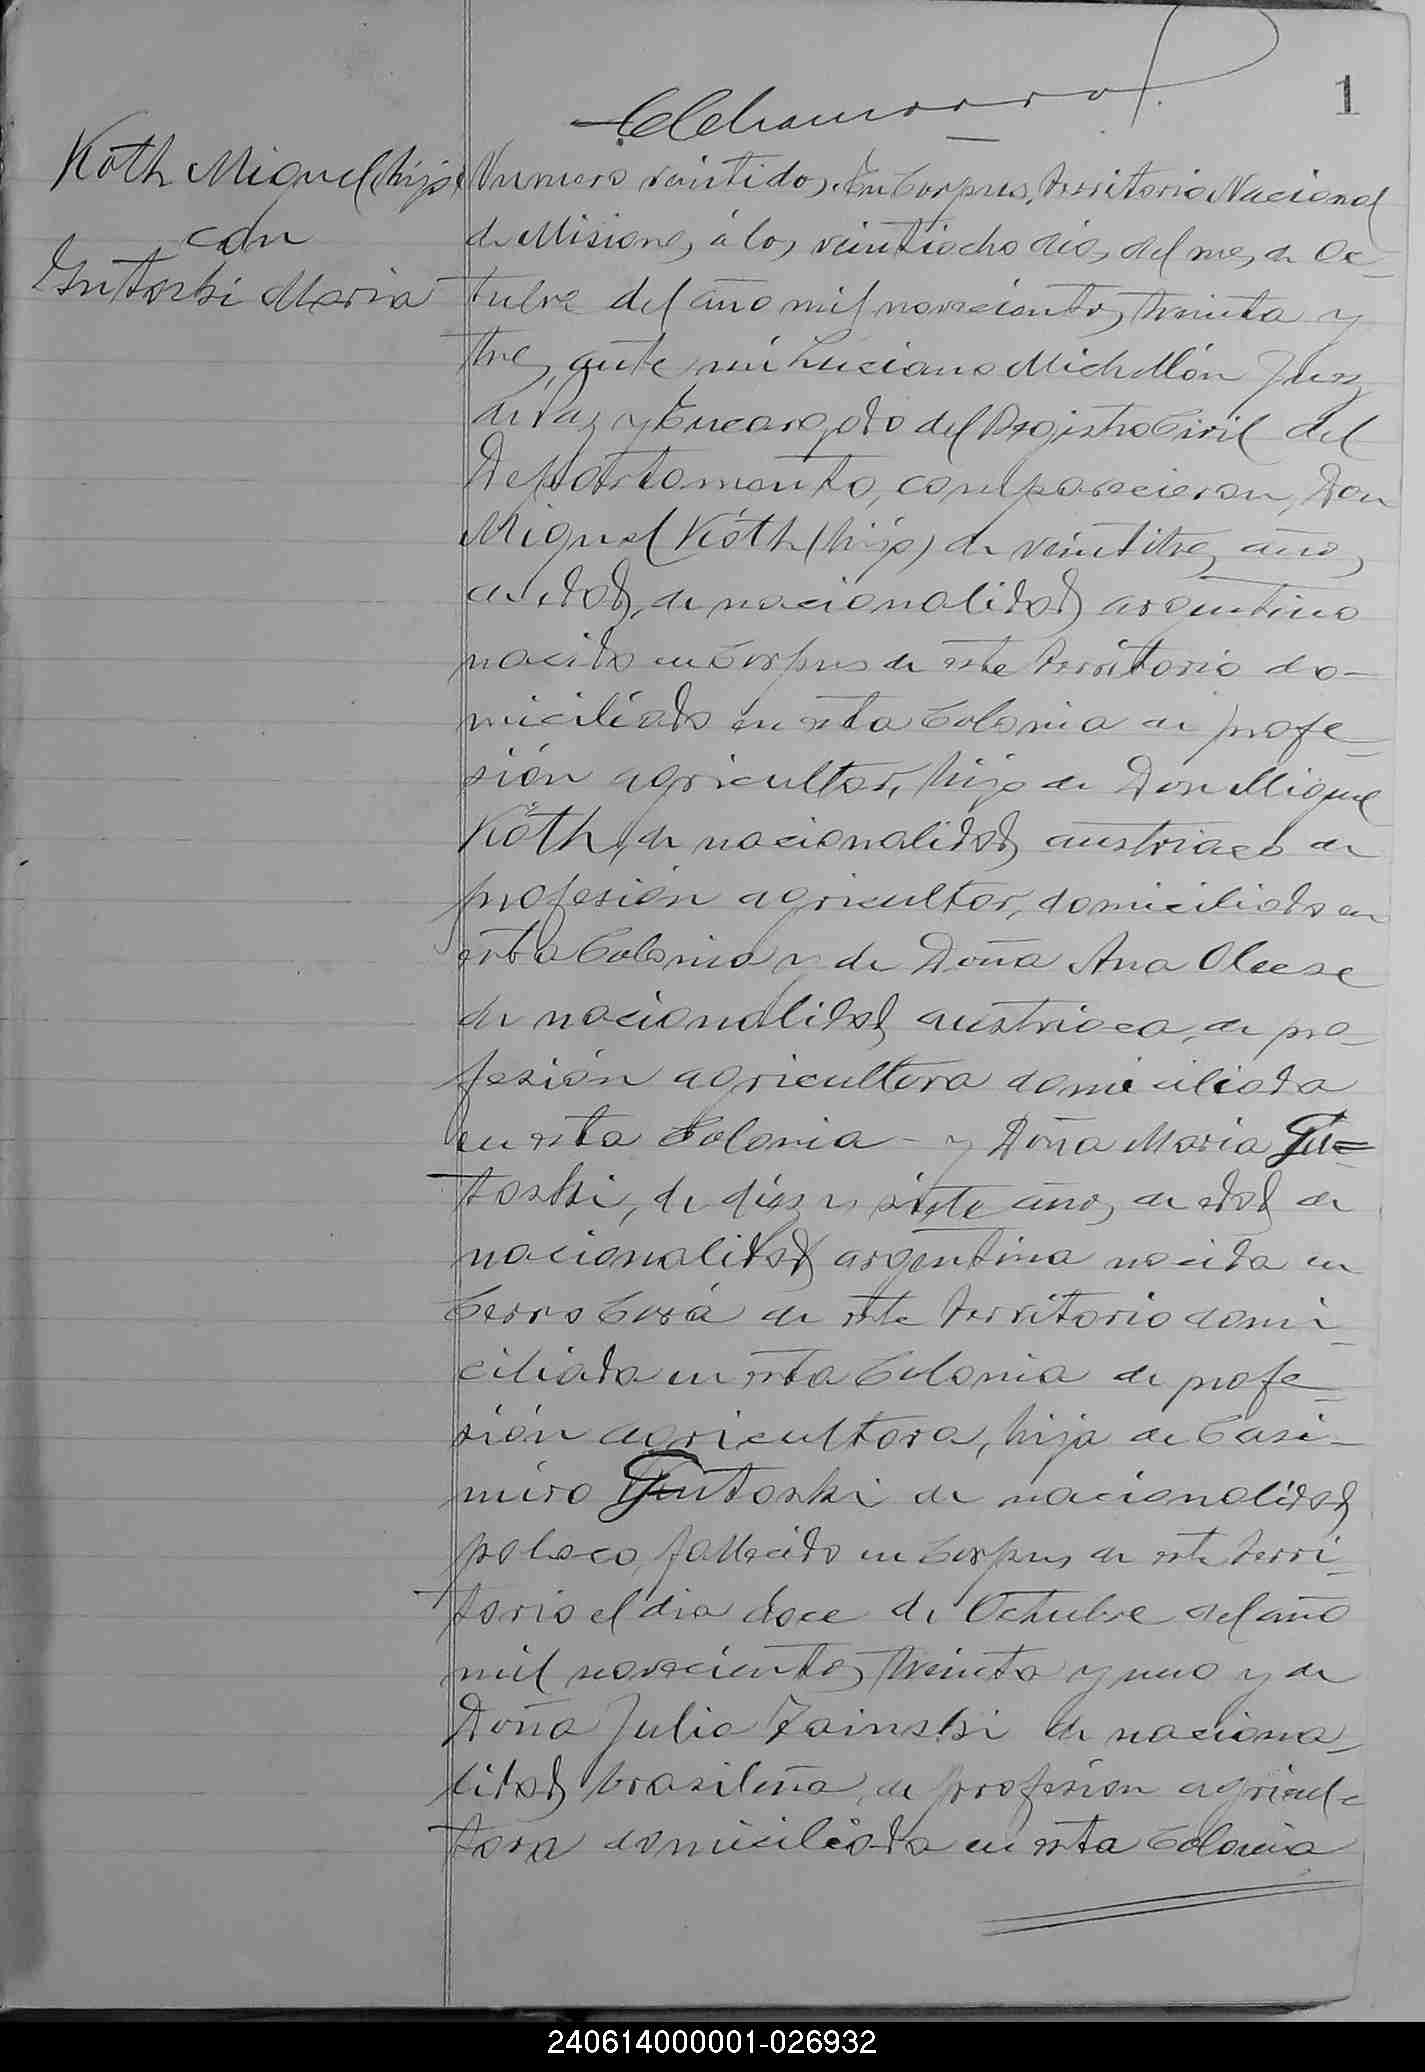 1
Köth Miguel (hijo)
con
Gutoski Maria
Numero veintidos. En Corpus, territorio Nacional
de Misiones, á los veintiocho dias del mes de Oc-
tubre del año mil novecientos treinta y
tres, ante mi Luciano Michellón Juez
de Paz y Encargado del Registro Civil del
Departamento, comparecieron, Don
Miguel Köth (hijo) de veintitres años
de edad, de nacionalidad argentino
nacido en Corpus de este territorio do-
miciliado en esta Colonia de profe-
sión agricultor, hijo de Don Miguel
Köth, de nacionalidad austriaco de
profesión agricultor, domiciliado en
esta Colonia y de Doña Ana
de nacionalidad austriaca, de pro-
fesión agricultora domiciliada
en esta Colonia - y Doña Maria Gu=
toski, de diez y siete años de edad de
nacionalidad argentina nacida en
Cerro Corá de este territorio domi-
ciliada en esta Colonia de profe-
sión agricultora, hija de Casi-
miro Gutoski de nacionalidad
polaco, fallecido en Corpus de este terri-
torio el dia doce de Octubre del año
mil novecientos treinta y uno y de
Doña Julia Zainski de naciona-
lidad brasileña, de profesion agricul-
tora domiciliada en esta Colonia
240614000001-026932